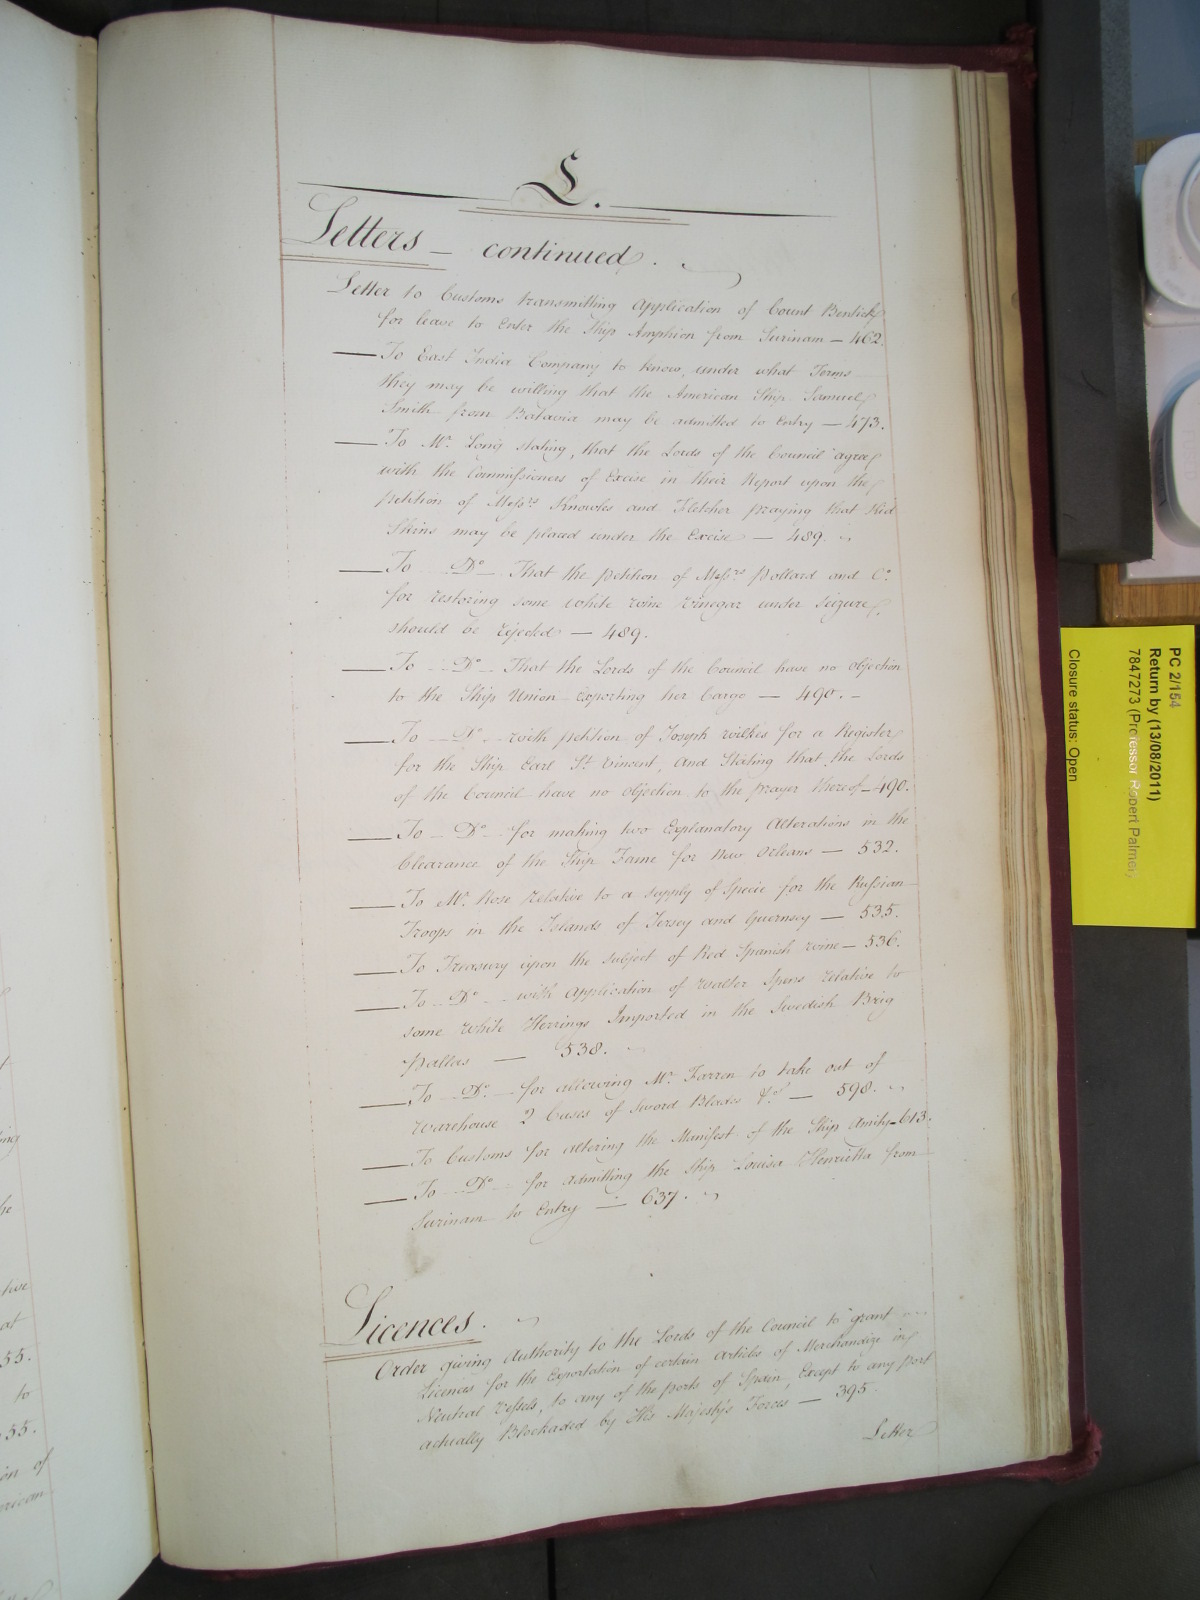 L.
Letters – continued.
Letter to Customs transmitting Application of Count Bentick
for leave to Enter the Ship Amphion from Surinam – 462.
— To East India Company to know, under what Terms
they may be willing that the American Ship Samuel
Smith from Batavia may be admitted to Entry – 473.
— To Mr. Long stating, that the Lords of the Council agree
with the Commissioners of Excise in their Report upon the
petition of Messrs. Knowles and Fletcher praying that Kid
Skins may be placed under the Excise – 489.
— To Do. That the petition of Messrs. Pollard and Co.
for restoring some white wine vinegar under seizure
should be rejected – 489.
— To Do. That the Lords of the Council have no objection
to the Ship Union exporting her Cargo – 490. –
— To Do. with petition of Joseph Wilkes for a Register
for the Ship Earl St. Vincent, and Stating that the Lords
of the Council have no objection to the prayer thereof – 490.
— To Do. for making two Explanatory Alterations in the
Clearance of the Ship Fame for New Orleans – 532.
— To Mr. Rose relative to a supply of Specie for the Russian
Troops in the Islands of Jersey and Guernsey – 535.
— To Treasury upon the subject of Red Spanish wine – 536.
— To Do. with Application of Walter Spens relative to
some white Herrings Imported in the Swedish Brig
Pallas – 538.
— To Do. for allowing Mr. Farren to take out of
warehouse 2 Cases of Sword Blades &c. – 598.
— To Customs for altering the Manifest of the Ship Amity – 613.
— To Do. for admitting the Ship Louisa Henrietta from
Surinam to Entry – 637.
Licences.
Order giving Authority to the Lords of the Council to grant
Licences for the Exportation of certain Articles of Merchandize in
Neutral Vessels, to any of the ports of Spain, Except to any port
actually Blockaded by His Majesty's Forces – 395.
Letter
PC 2/154
Return by (13/08/2011)
7847273 (Professor Robert Palmer)
Closure status: Open
55.
to
55.
on of